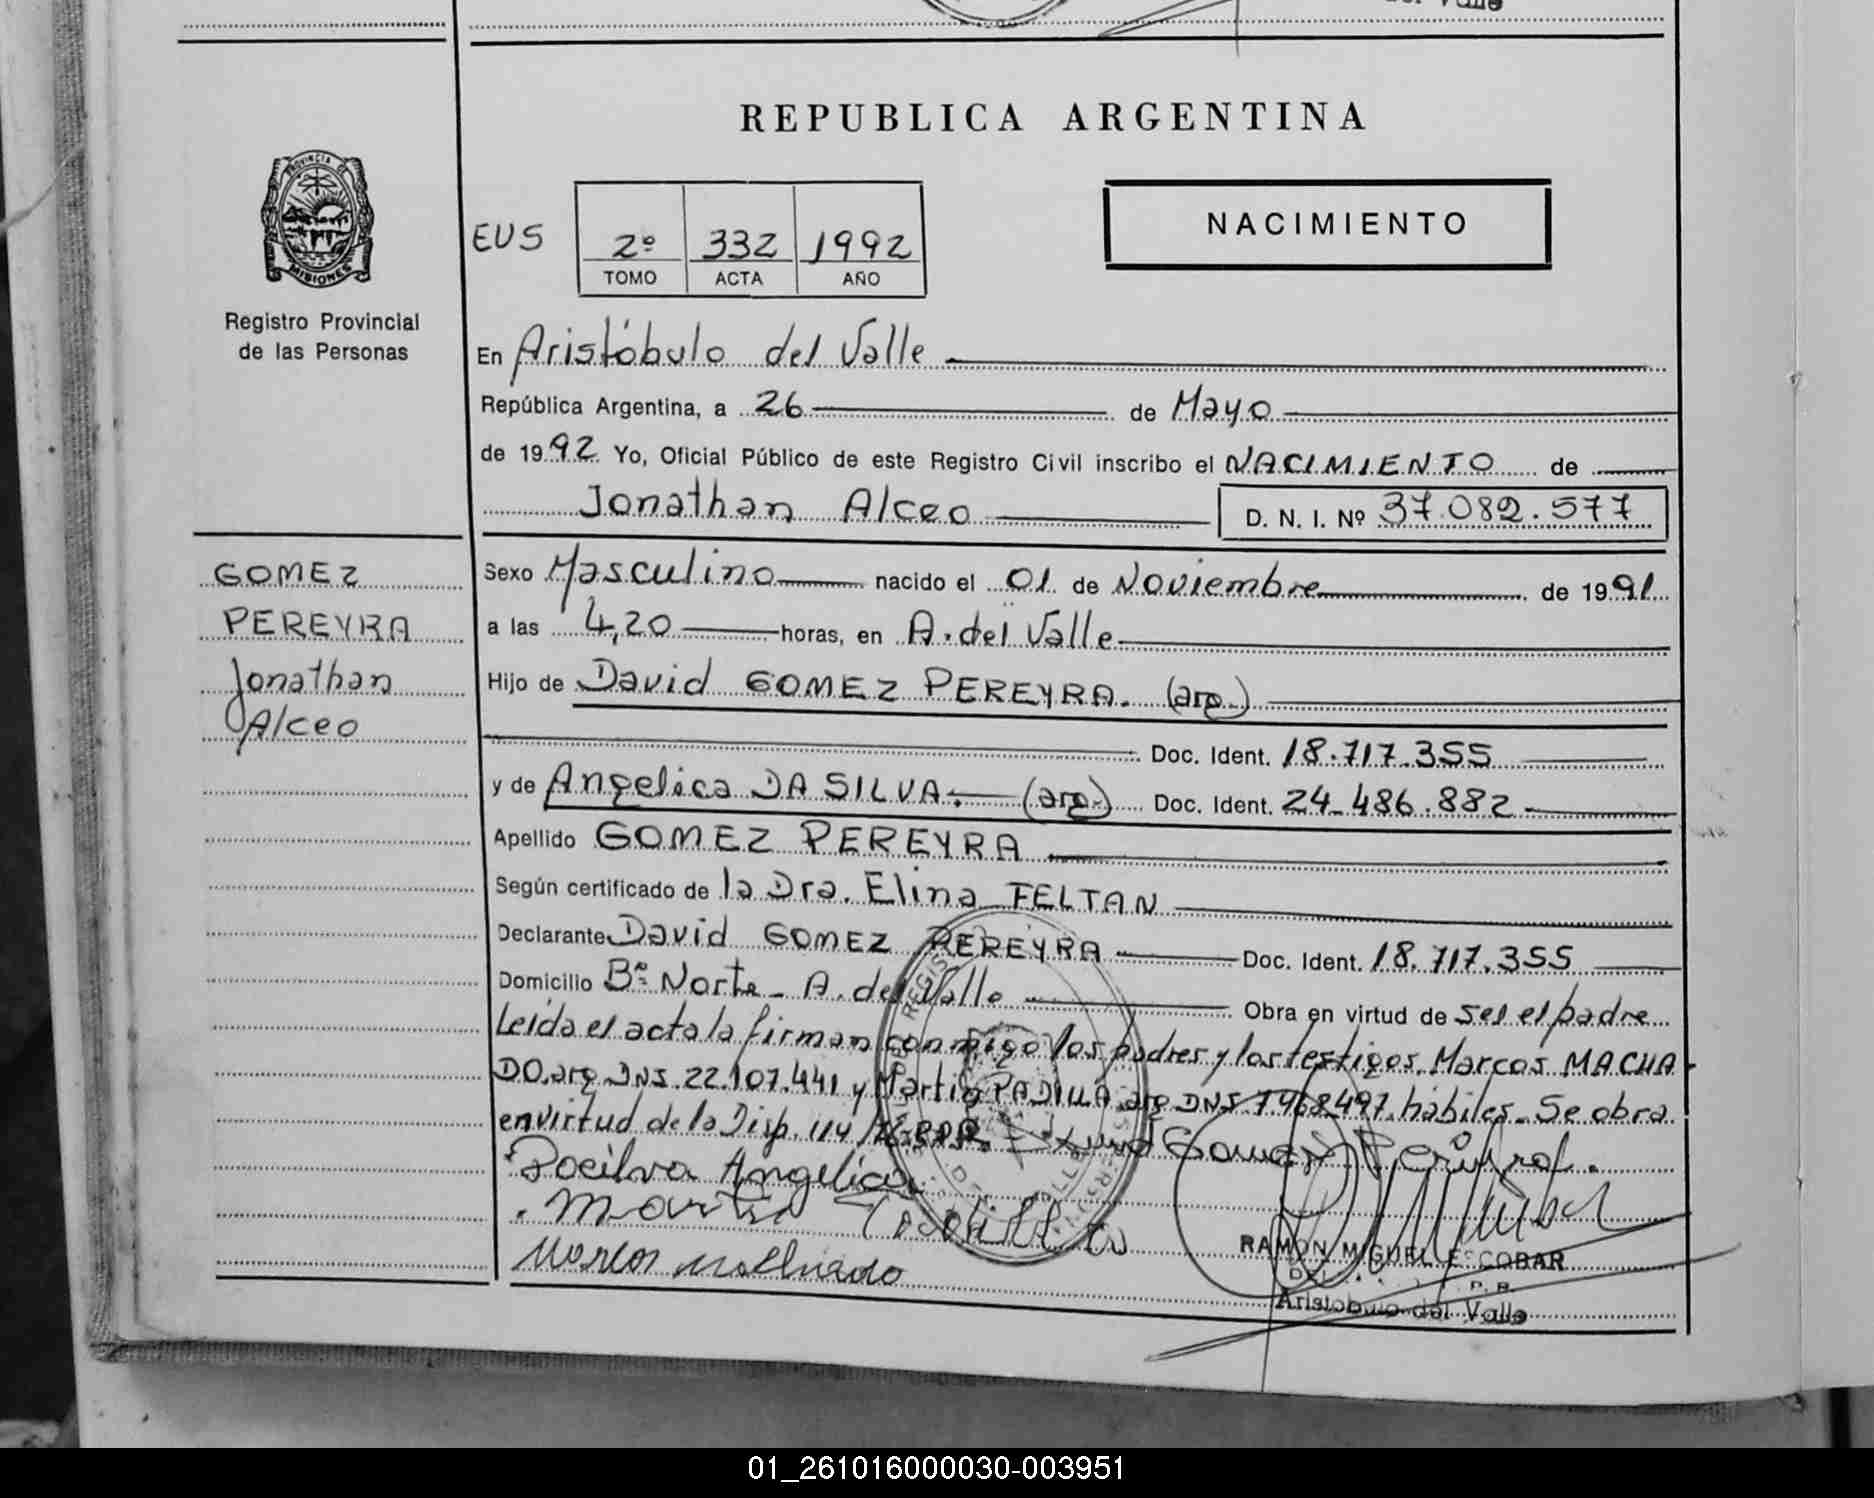 REPUBLICA ARGENTINA
PROVINCIA DE
MISIONES
Registro Provincial
de las Personas
EUS
2º 332 1992
TOMO ACTA AÑO
NACIMIENTO
En Aristóbulo del Valle
República Argentina, a 26 de Mayo
de 1992 Yo, Oficial Público de este Registro Civil inscribo el NACIMIENTO de
Jonathan Alceo D. N. I. Nº 37.082.577
GOMEZ
PEREYRA
Jonathan
Alceo
Sexo Masculino nacido el 01 de Noviembre de 1991
a las 4,20 horas, en A. del Valle
Hijo de David GOMEZ PEREYRA. (arg.)
Doc. Ident. 18.717.355
y de Angelica DA SILVA. (arg.) Doc. Ident. 24.486.882
Apellido GOMEZ PEREYRA
Según certificado de la Dra. Elina FELTAN
Declarante David GOMEZ PEREYRA Doc. Ident. 18.717.355
Domicilio Bº Norte - A. del Valle Obra en virtud de ser el padre
Leída el acta la firman conmigo los padres y los testigos. Marcos MACHA-
DO. arg DNI. 22.107.441 y Martin PADILLA arg DNI 7.968497. hábiles. Se obra
en virtud de la Disp. 114
Dacilva Angelica
Martin Padilla
Marcos Machado
RAMON MIGUEL ESCOBAR
Aristobulo del Valle
01_261016000030-003951